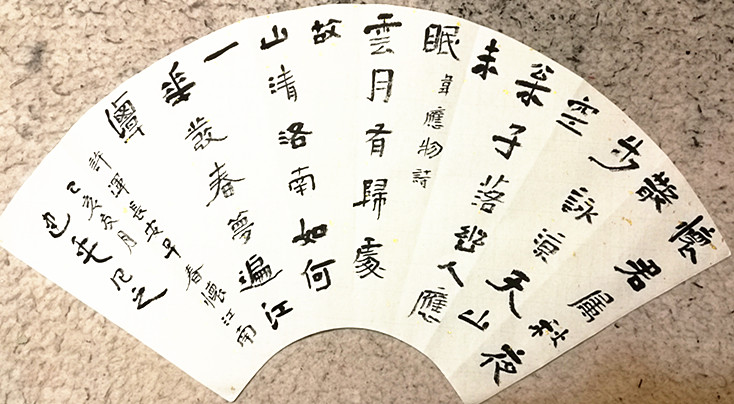 懷君屬秋夜
散
步詠涼天
空山
枩子落幽人應
未
眠 韋應物詩
雲月有歸處
故
山清洛南如何
一
華發春夢遍江
潭 許渾長安早春懷江南
己亥夏月